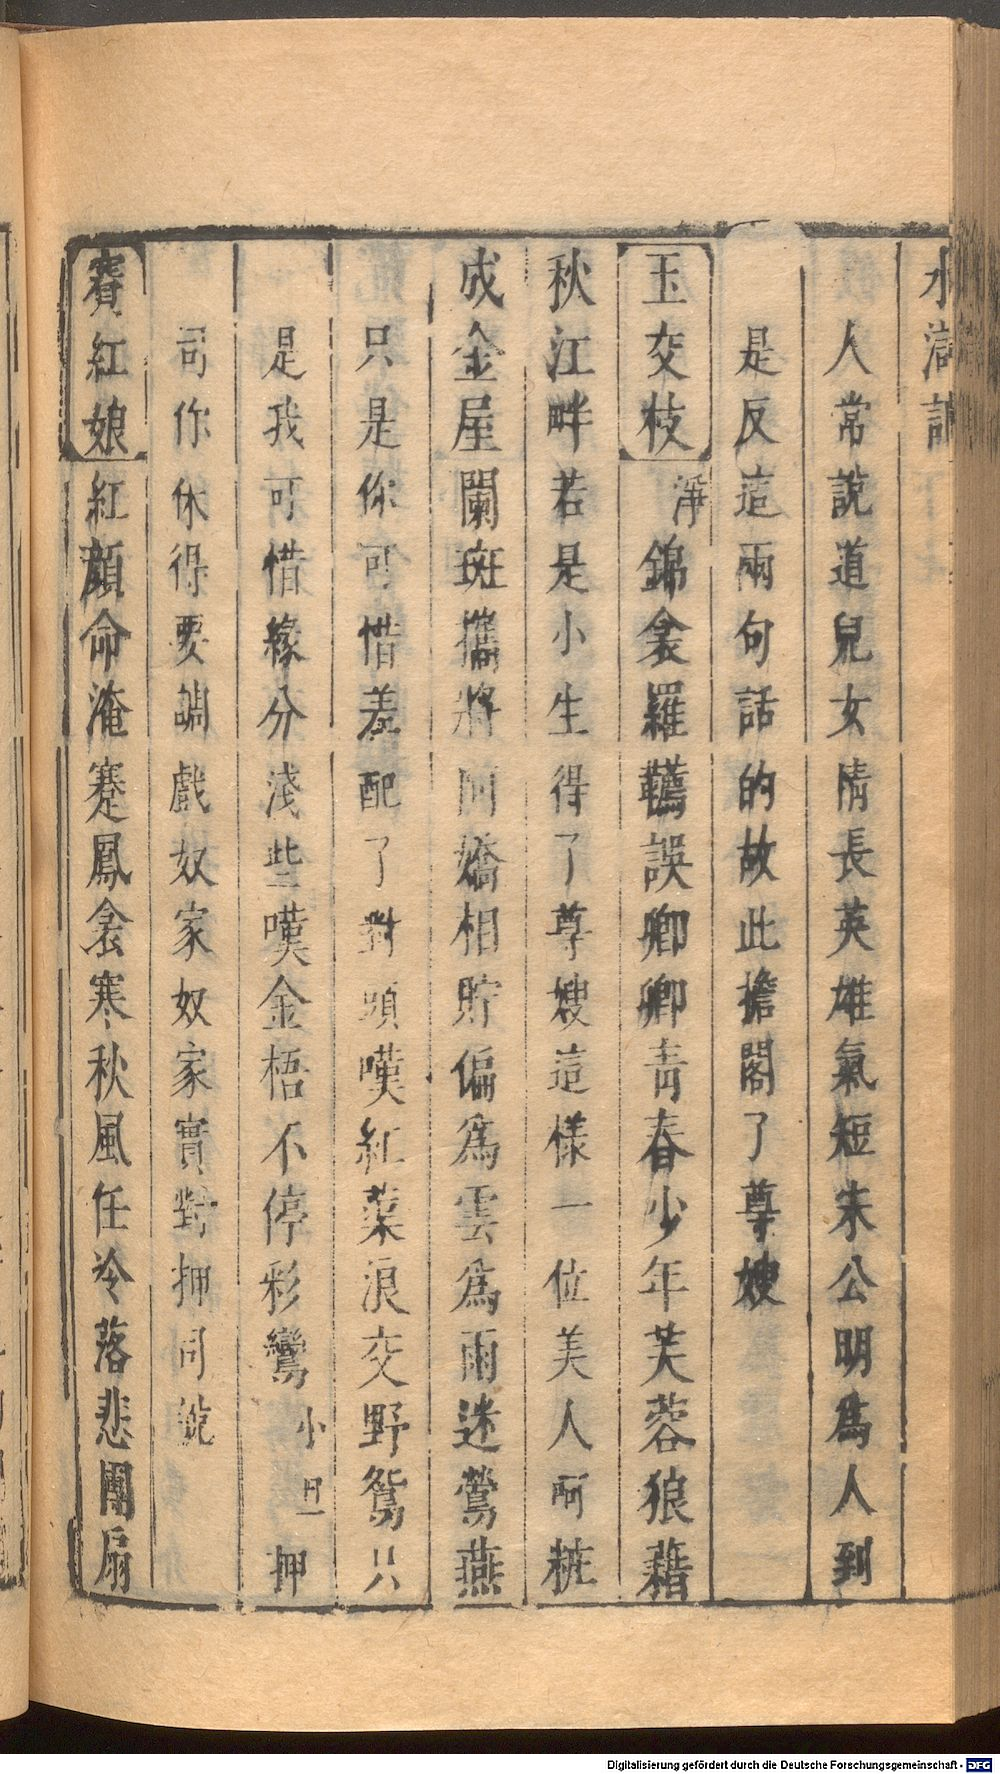 水滸記
人常說道兒女情長英雄氣短宋公明爲人到
是反這兩句話的故此擔閣了尊嫂
玉交枝 淨 錦衾羅韉誤卿卿青春少年芙蓉狼藉
秋江畔若是小生得了尊嫂這樣一位美人呵粧
成金屋闌斑攜將阿嬌相貯偏爲雲爲雨迷鶯燕
只是你可惜差配了對頭嘆紅葉浪交野鴛只
是我可惜緣分淺些嘆金梧不停彩鸞 小旦 押
司你休得要調戲奴家奴家實對押司說
賽紅娘 紅顏命淹蹇鳳衾寒秋風任冷落悲團扇
Digitalisierung gefördert durch die Deutsche Forschungsgemeinschaft - DFG